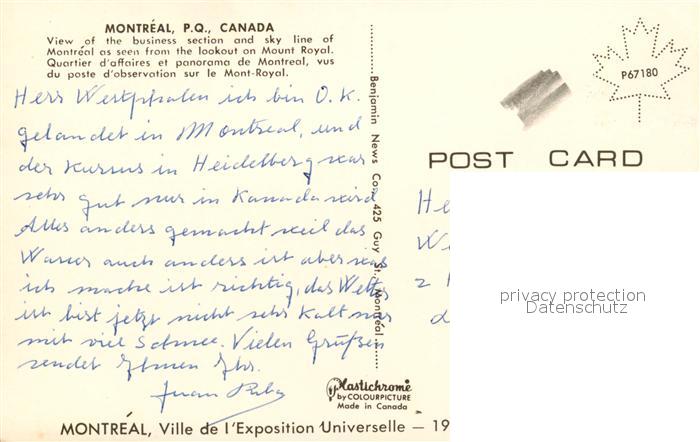 MONTRÉAL, P.Q., CANADA
View of the business section and sky line of
Montréal as seen from the lookout on Mount Royal.
Quartier d'affaires et panorama de Montreal, vus
du poste d'observation sur le Mont-Royal.
Herr Westphalen ich bin O.K.
gelandet in Montreal, und
der Kursus in Heidelberg war
sehr gut nur in Kanada wird
Alles anders gemacht weil das
Wasser auch anders ist aber was
ich mache ist richtig, das Wetter
ist bist jetzt nicht sehr kalt nur
mit viel Schnee. Vielen Grüßen
sendet Ihnen Ihr.
Juan
Benjamin News Co. 425 Guy St. Montréal
P67180
POST CARD
He
We
2
d
privacy protection
Datenschutz
Plastichrome
by COLOURPICTURE
Made in Canada
MONTRÉAL, Ville de l'Exposition Universelle — 19